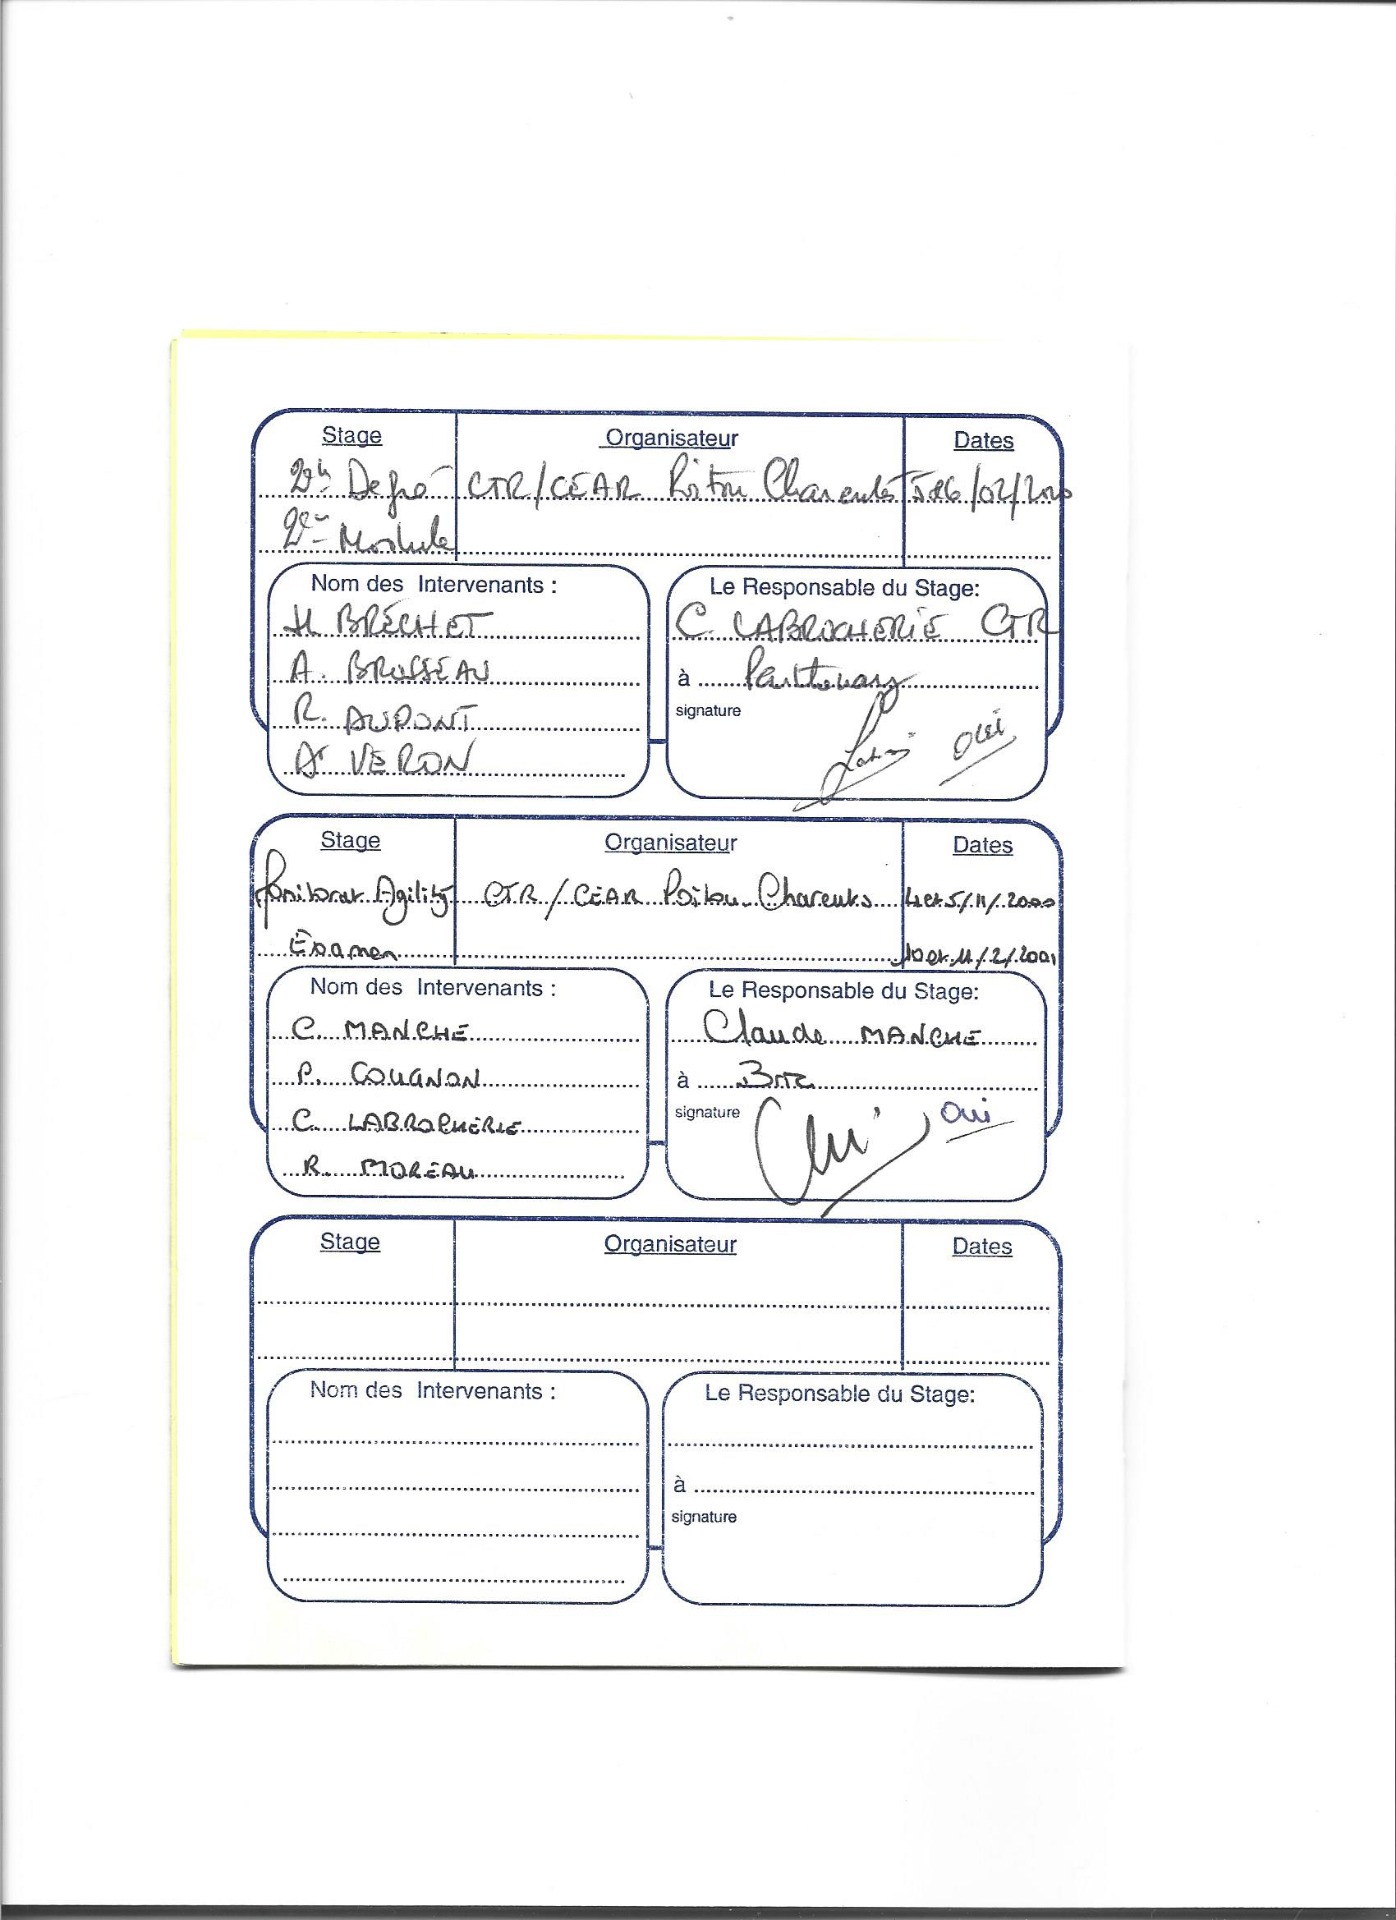 Stage Organisateur Dates
Degré CTR/CEAR Poitou Charentes 5 et 6/02/2000
2è Module
Nom des Intervenants : Le Responsable du Stage:
BRÉCHET C. LABROCHERIE CTR
A. BROSSEAU à Parthenay
R. DUPONT signature
VERON oui
Stage Organisateur Dates
Monitorat Agility CTR/CEAR Poitou-Charentes 4 et 5/11/2000
Examen 10 et 11/2/2001
Nom des Intervenants : Le Responsable du Stage:
C. MANCHE Claude MANCHE
P. COUGNON à
C. LABROCHERIE signature oui
R. MOREAU
Stage Organisateur Dates
Nom des Intervenants : Le Responsable du Stage:
à
signature